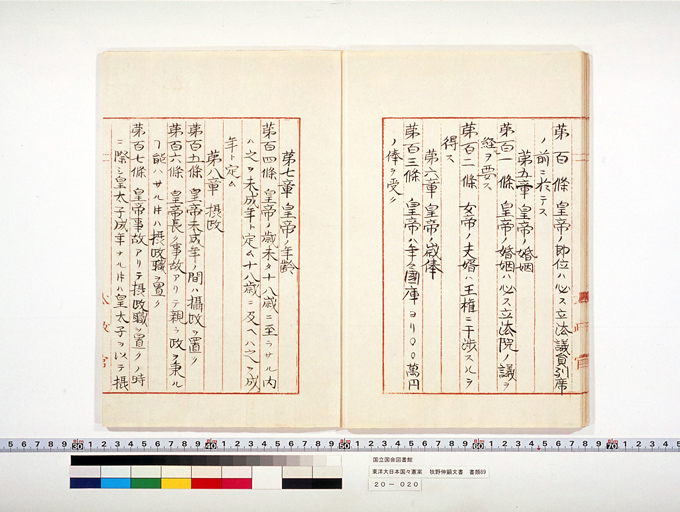 第百條　皇帝ノ即位ハ必ス立法議員列席
ノ前ニ於テス
第五章　皇帝ノ婚姻
第百一條　皇帝ノ婚姻ハ必ス立法院ノ議ヲ
経ヲ要ス
第百二條　女帝ノ夫婿ハ王權ニ干渉スルヲ
得ス
第六章　皇帝ノ歳俸
第百三條　皇帝ハ年々國庫ヨリ〇〇萬円
ノ俸ヲ受ク
第七章　皇帝ノ年齢
第百四條　皇帝ノ歳未タ十八歳ニ至ラサル内
ハ之ヲ未成年ト定ム十八歳ニ及ヘハ之ヲ成
年ト定ム
第八章　摂政
第百五條　皇帝未成年ノ間ハ攝政ヲ置ク
第百六條　皇帝長ク事故アリテ親ラ政ヲ秉ル
フ能ハサル片ハ摂政職ヲ置ク
第百七條　皇帝事故アリテ摂政職ヲ置クノ時
ニ際シ皇太子成年ナル片ハ皇太子ヲ以テ摂
太政官
5 6 7 8 9 30 1 2 3 4 5 6 7 8 9 40 1 2 3 4 5 6 7 8 9 50 1 2 3 4 5 6 7 8 9 60 1 2 3 4 5 6 7 8 9 70 1 2 3 4
国立国会図書館
東洋大日本国々憲案　牧野伸顕文書　書類89
20－020